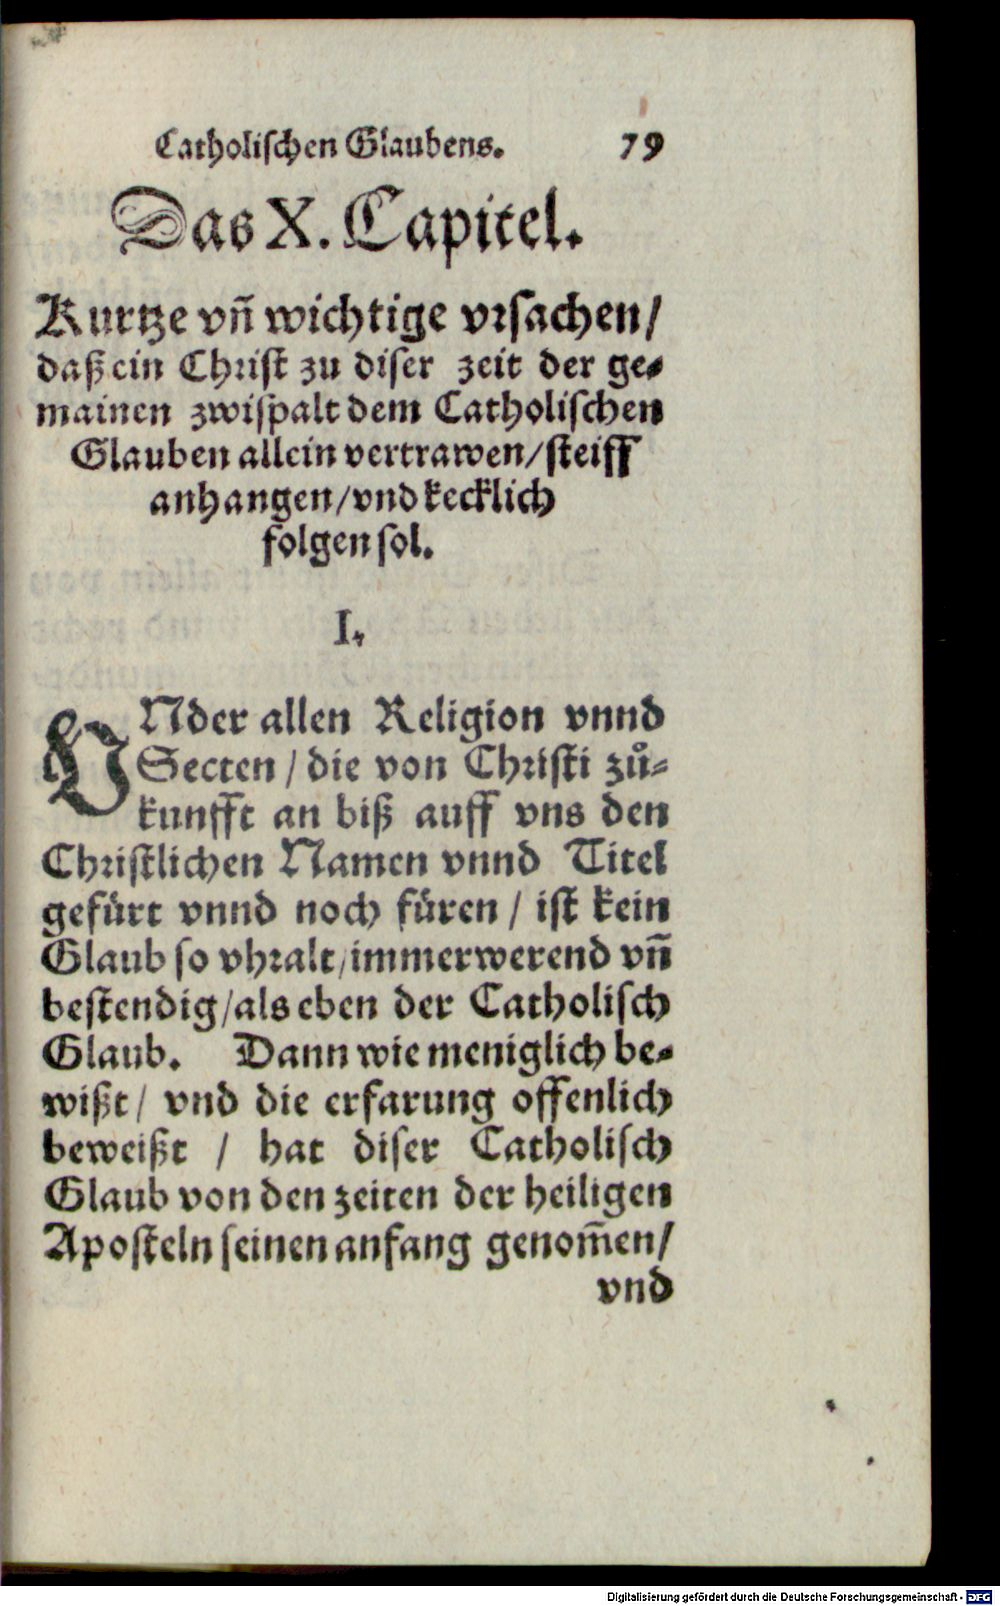 Catholischen Glaubens. 79
Das X. Capitel.
Kurtze vñ wichtige vrsachen/
daß ein Christ zu diser zeit der ge-
mainen zwispalt dem Catholischen
Glauben allein vertrawen/steiff
anhangen/vnd kecklich
folgen sol.
I.
VNder allen Religion vnnd
Secten / die von Christi zuͦ-
kunfft an biß auff vns den
Christlichen Namen vnnd Titel
gefürt vnnd noch füren / ist kein
Glaub so vhralt/immerwerend vñ
bestendig/als eben der Catholisch
Glaub. Dann wie meniglich be-
wißt/ vnd die erfarung offenlich
beweißt / hat diser Catholisch
Glaub von den zeiten der heiligen
Aposteln seinen anfang genom̃en/
vnd
Digitalisierung gefördert durch die Deutsche Forschungsgemeinschaft - DFG